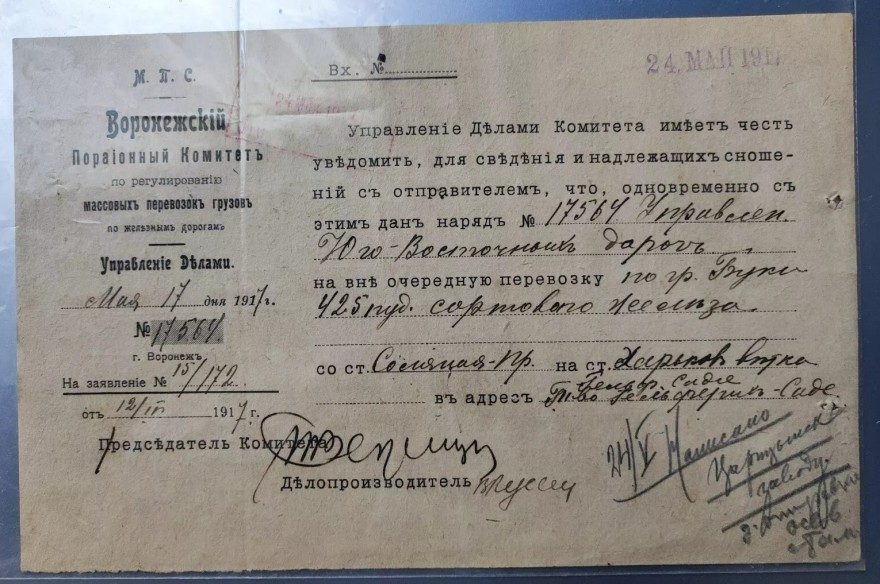 М. П. С.
Воронежскій
Пораіонный Комитетъ
по регулированію
массовыхъ перевозокъ грузовъ
по желѣзнымъ дорогамъ
Управленіе Дѣлами.
Мая 17 дня 1917 г.
№ 17564.
г. Воронежъ
На заявленіе № 15/172
отъ 12/III 1917 г.
Предсѣдатель Комитета
Вх. №
24. МАЙ 191
Управленіе Дѣлами Комитета имѣетъ честь
увѣдомить, для свѣдѣнія и надлежащихъ сноше-
ній съ отправителемъ, что, одновременно съ
этимъ данъ нарядъ № 17564 Управлен.
Юго-Восточныхъ дорогъ
на внѣ очередную перевозку по гр.
425 пуд. сортового желѣза.
со ст. на ст. Харьковъ
въ адресъ Т-во
Дѣлопроизводитель
24/V Написано
заводу.